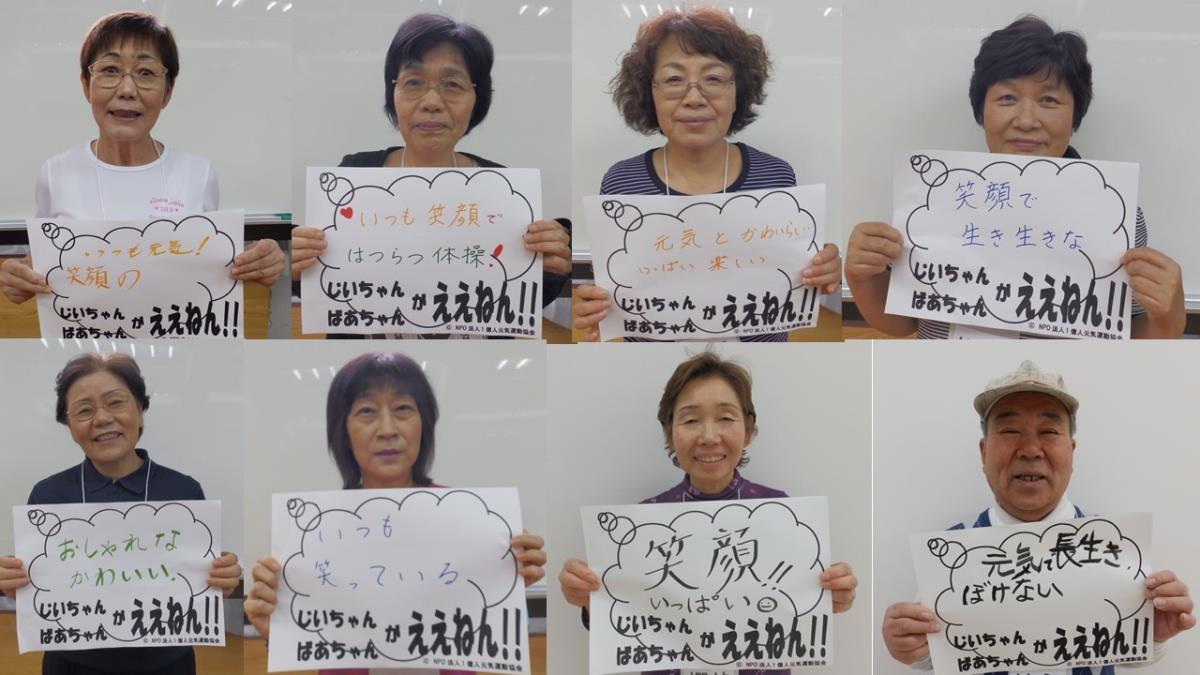 いつも元気!
笑顔の
じいちゃん
ばあちゃん
が
ええねん!!
いつも笑顔で
はつらつ体操!
じいちゃん
ばあちゃん
が
ええねん!!
© NPO法人1億人元気運動協会
元気とかわいらしい
いっぱい楽しい
じいちゃん
ばあちゃん
が
ええねん!!
© NPO法人1億人元気運動協会
笑顔で
生き生きな
じいちゃん
ばあちゃん
が
ええねん!!
© NPO法人1億人元気運動協会
おしゃれな
かわいい.
じいちゃん
ばあちゃん
が
ええねん!!
© NPO法人1億人元気運動協会
いつも
笑っている
じいちゃん
ばあちゃん
が
ええねん!!
© NPO法人1億人元気運動協会
笑顔!!
いっぱい
じいちゃん
ばあちゃん
が
ええねん!!
© NPO法人1億人元気運動協会
元気で長生き,
ぼけない
じいちゃん
ばあちゃん
が
ええねん!!
© NPO法人1億人元気運動協会